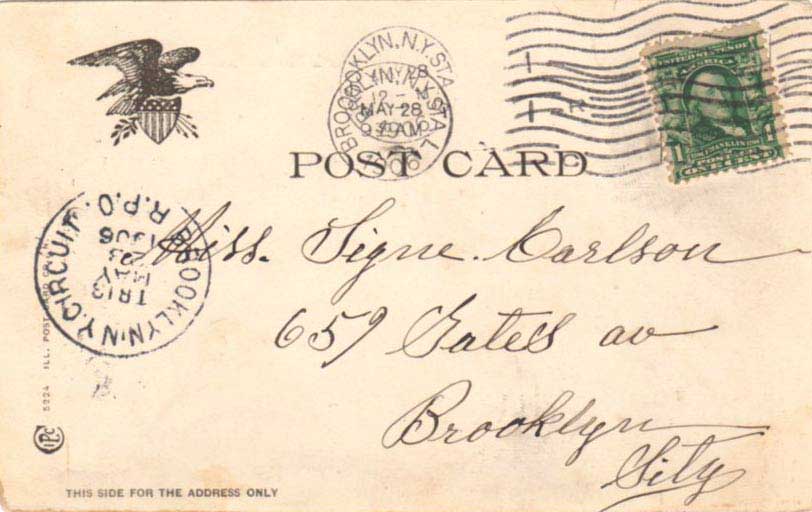 BROOKLYN, N.Y. STA.
12 -
BROOKLYN, N.Y. STA. L
MAY 28
9 30 AM
1906
UNITED STATES OF
AMERICA
1 FRANKLIN 1
ONE CENT
POST CARD
BROOKLYN, N.Y. CIRCUIT
R.P.O.
TR13
MAY
1906
Miss. Signe. Carlson
659 Gates av
Brooklyn
City
5224 ILL. POST CARD CO. N.Y.
IPC
THIS SIDE FOR THE ADDRESS ONLY